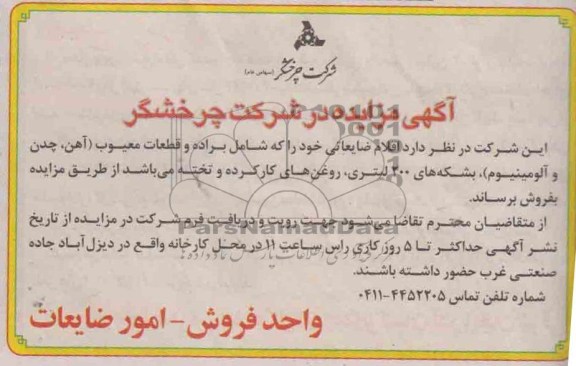 شرکت چرخشگر (سهامی عام)
آگهی مزایده در شرکت چرخشگر
این شرکت در نظر دارد اقلام ضایعاتی خود را که شامل براده و قطعات معیوب (آهن، چدن
و آلومینیوم)، بشکه‌های ۲۰۰ لیتری، روغن‌های کارکرده و تخته می‌باشد از طریق مزایده
بفروش برساند.
از متقاضیان محترم تقاضا می‌شود جهت رویت و دریافت فرم شرکت در مزایده از تاریخ
نشر آگهی حداکثر تا ۵ روز کاری راس ساعت ۱۱ در محل کارخانه واقع در دیزل آباد جاده
صنعتی غرب حضور داشته باشند.
شماره تلفن تماس ۴۴۵۲۲۰۵-۰۴۱۱
واحد فروش - امور ضایعات
ParsNamadData